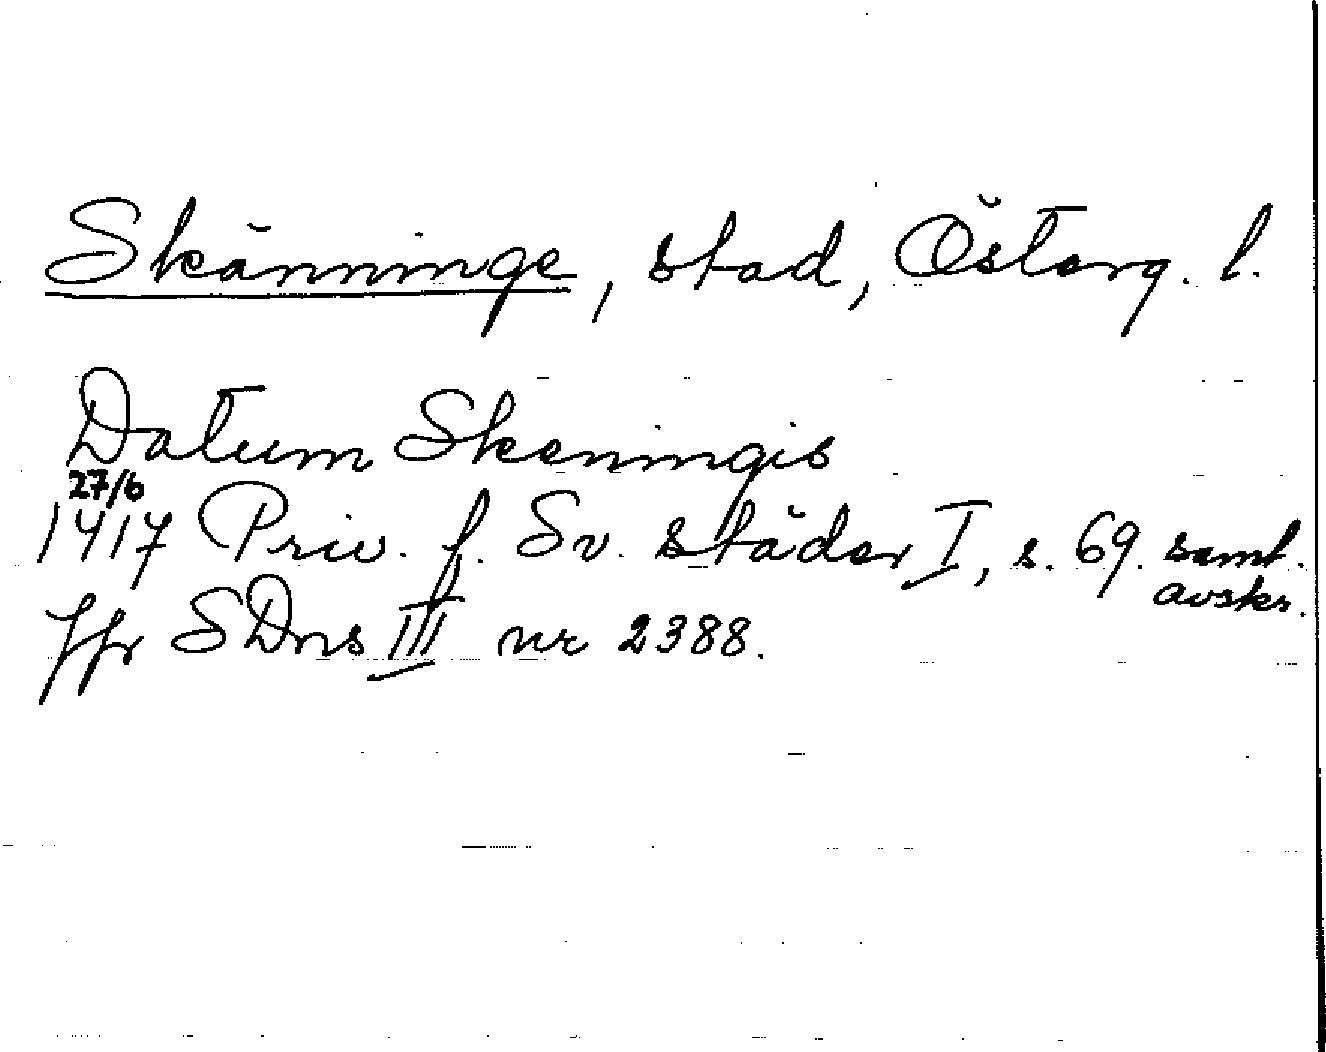 Skänninge, stad, Österg. l.
Datum Skeningis
27/6
1417 Priv. f. Sv. städer I, s. 69. samt.
avskr.
Jfr SDns III nr 2388.